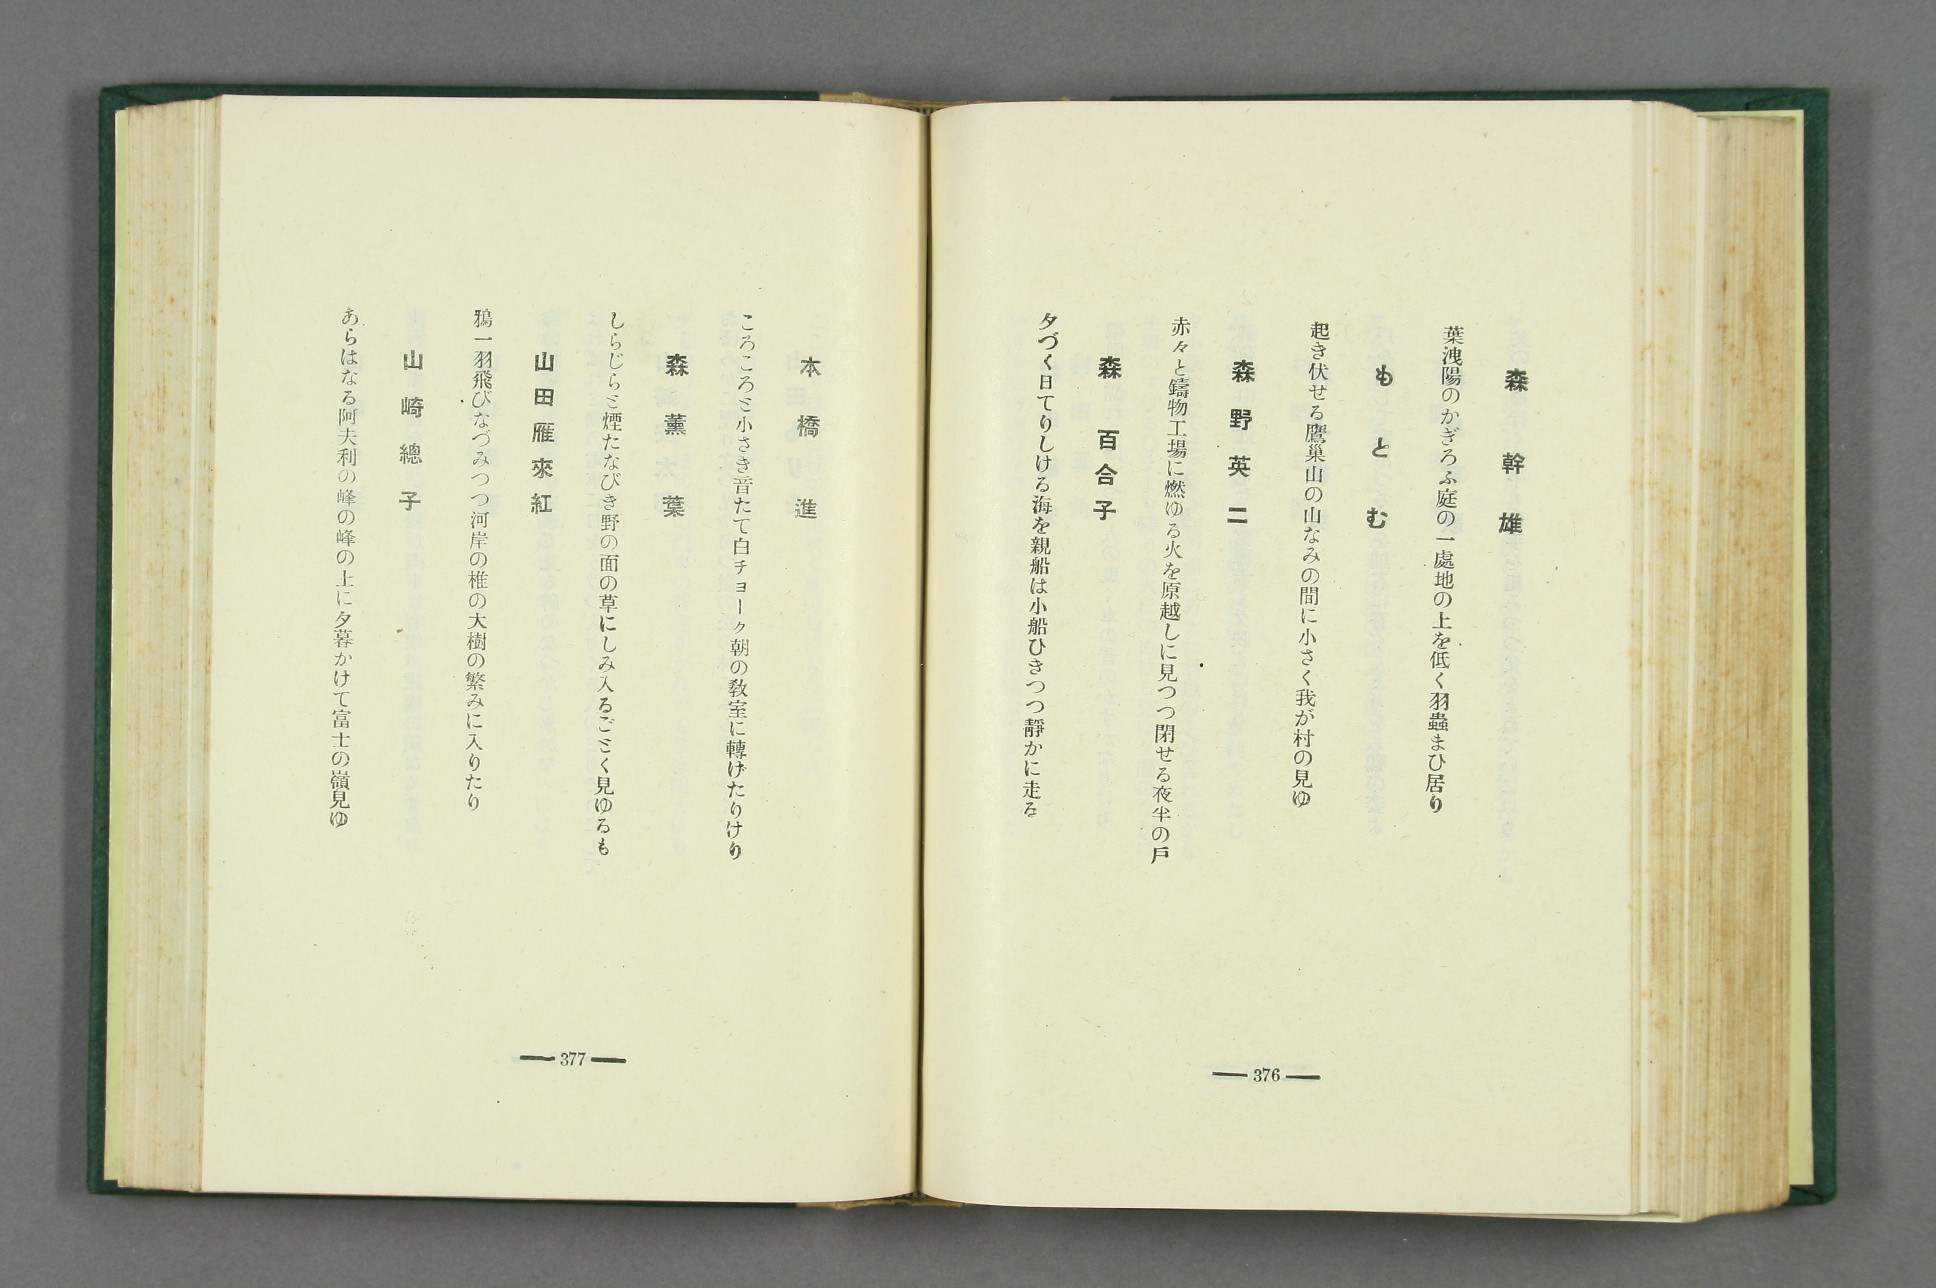 森幹雄
葉洩陽のかぎろふ庭の一處地の上を低く羽蟲まひ居り
もとむ
起き伏せる鷹巢山の山なみの間に小さく我が村の見ゆ
森野英二
赤々と鑄物工場に燃ゆる火を原越しに見つつ閉せる夜半の戶
森百合子
夕づく日てりしける海を親船は小船ひきつつ靜かに走る
― 376 ―
本橋進
ころころと小さき音たて白チョーク朝の敎室に轉げたりけり
森薰葉
しらじらと煙たなびき野の面の草にしみ入るごとく見ゆるも
山田雁來紅
鴉一羽飛びなづみつつ河岸の椎の大樹の繁みに入りたり
山崎總子
あらはなる阿夫利の峰の峰の上に夕暮かけて富士の嶺見ゆ
― 377 ―